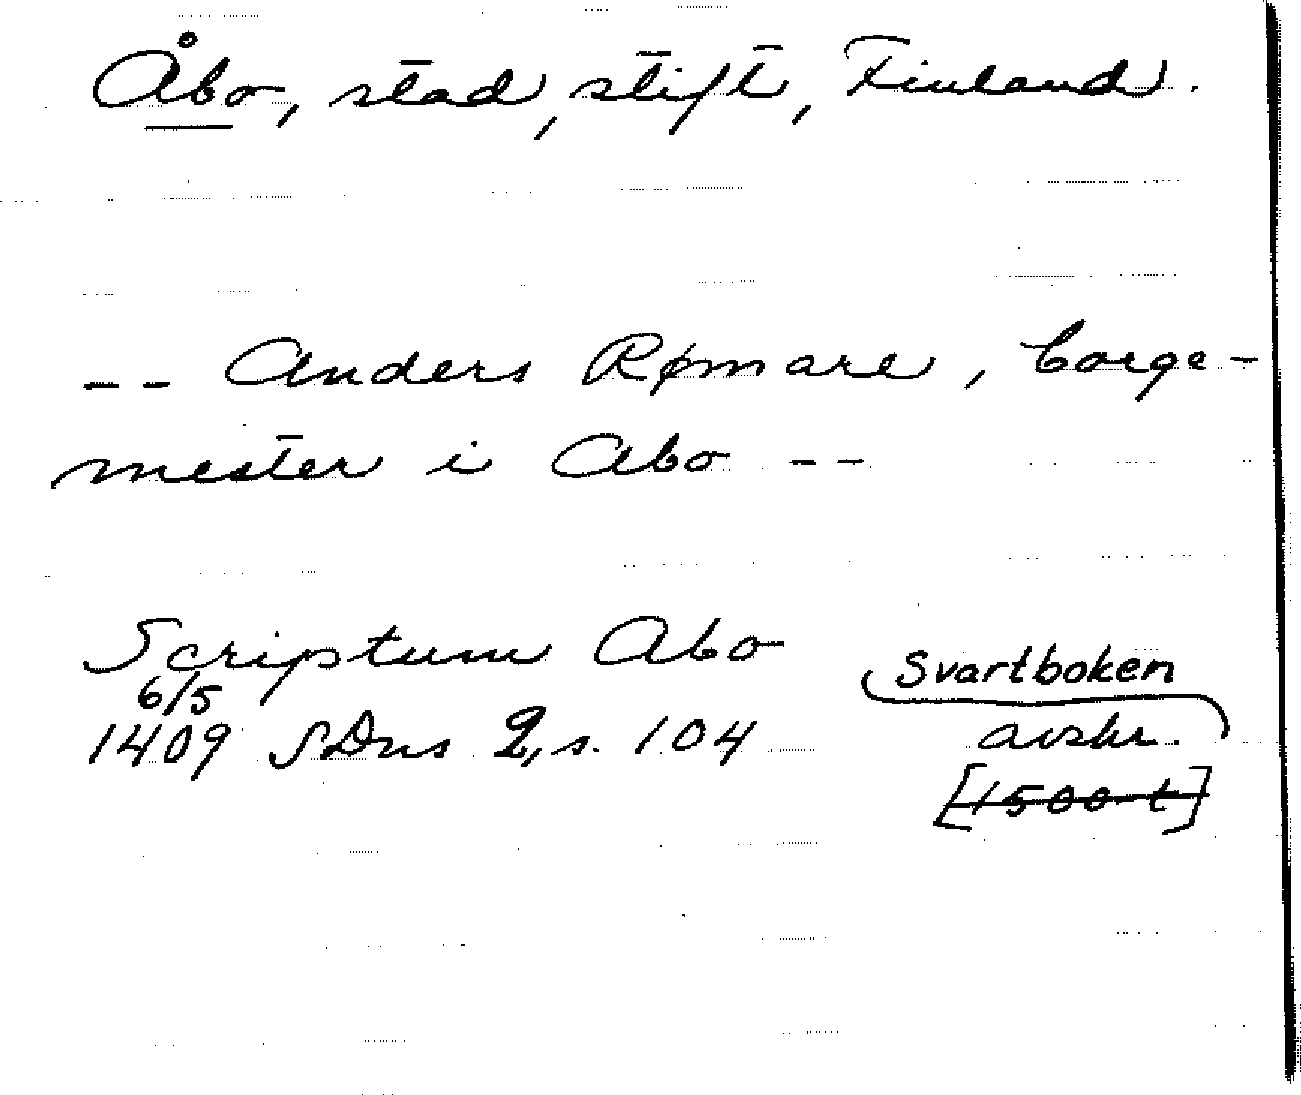 Åbo, stad, stift, Finland.
-- Anders Rømare, borge-
mester i Abo --
Scriptum Abo
6/5
1409 SDns 2, s. 104
Svartboken
avskr.
[1500-t]